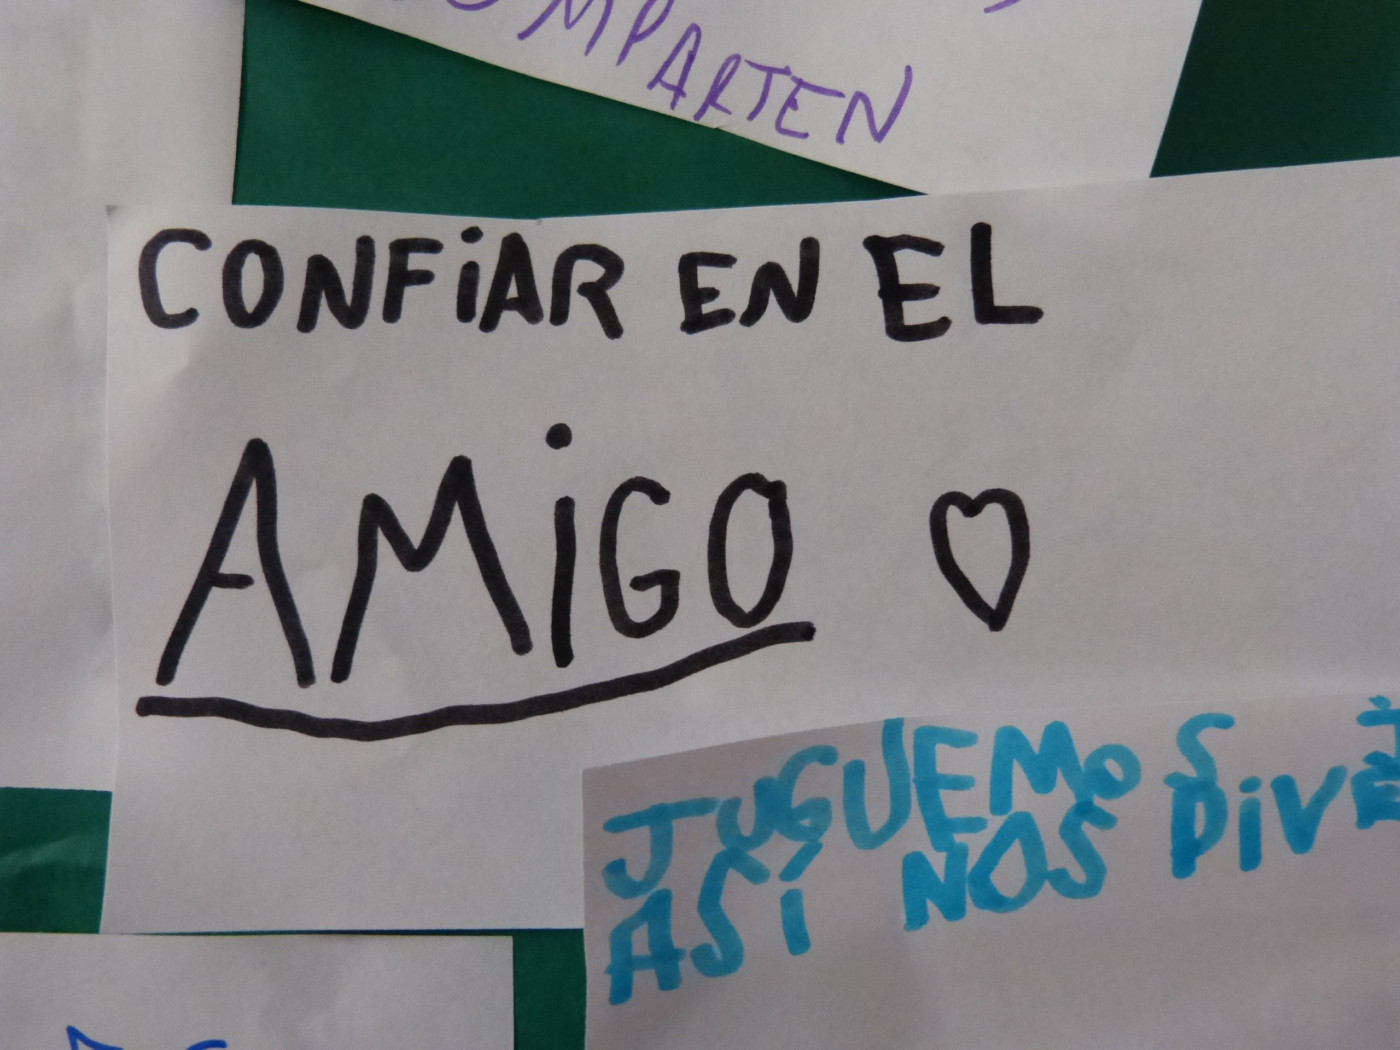 COMPARTEN
CONFiAR EN EL
AMiGO
JUGUEMOS
ASÍ NOS